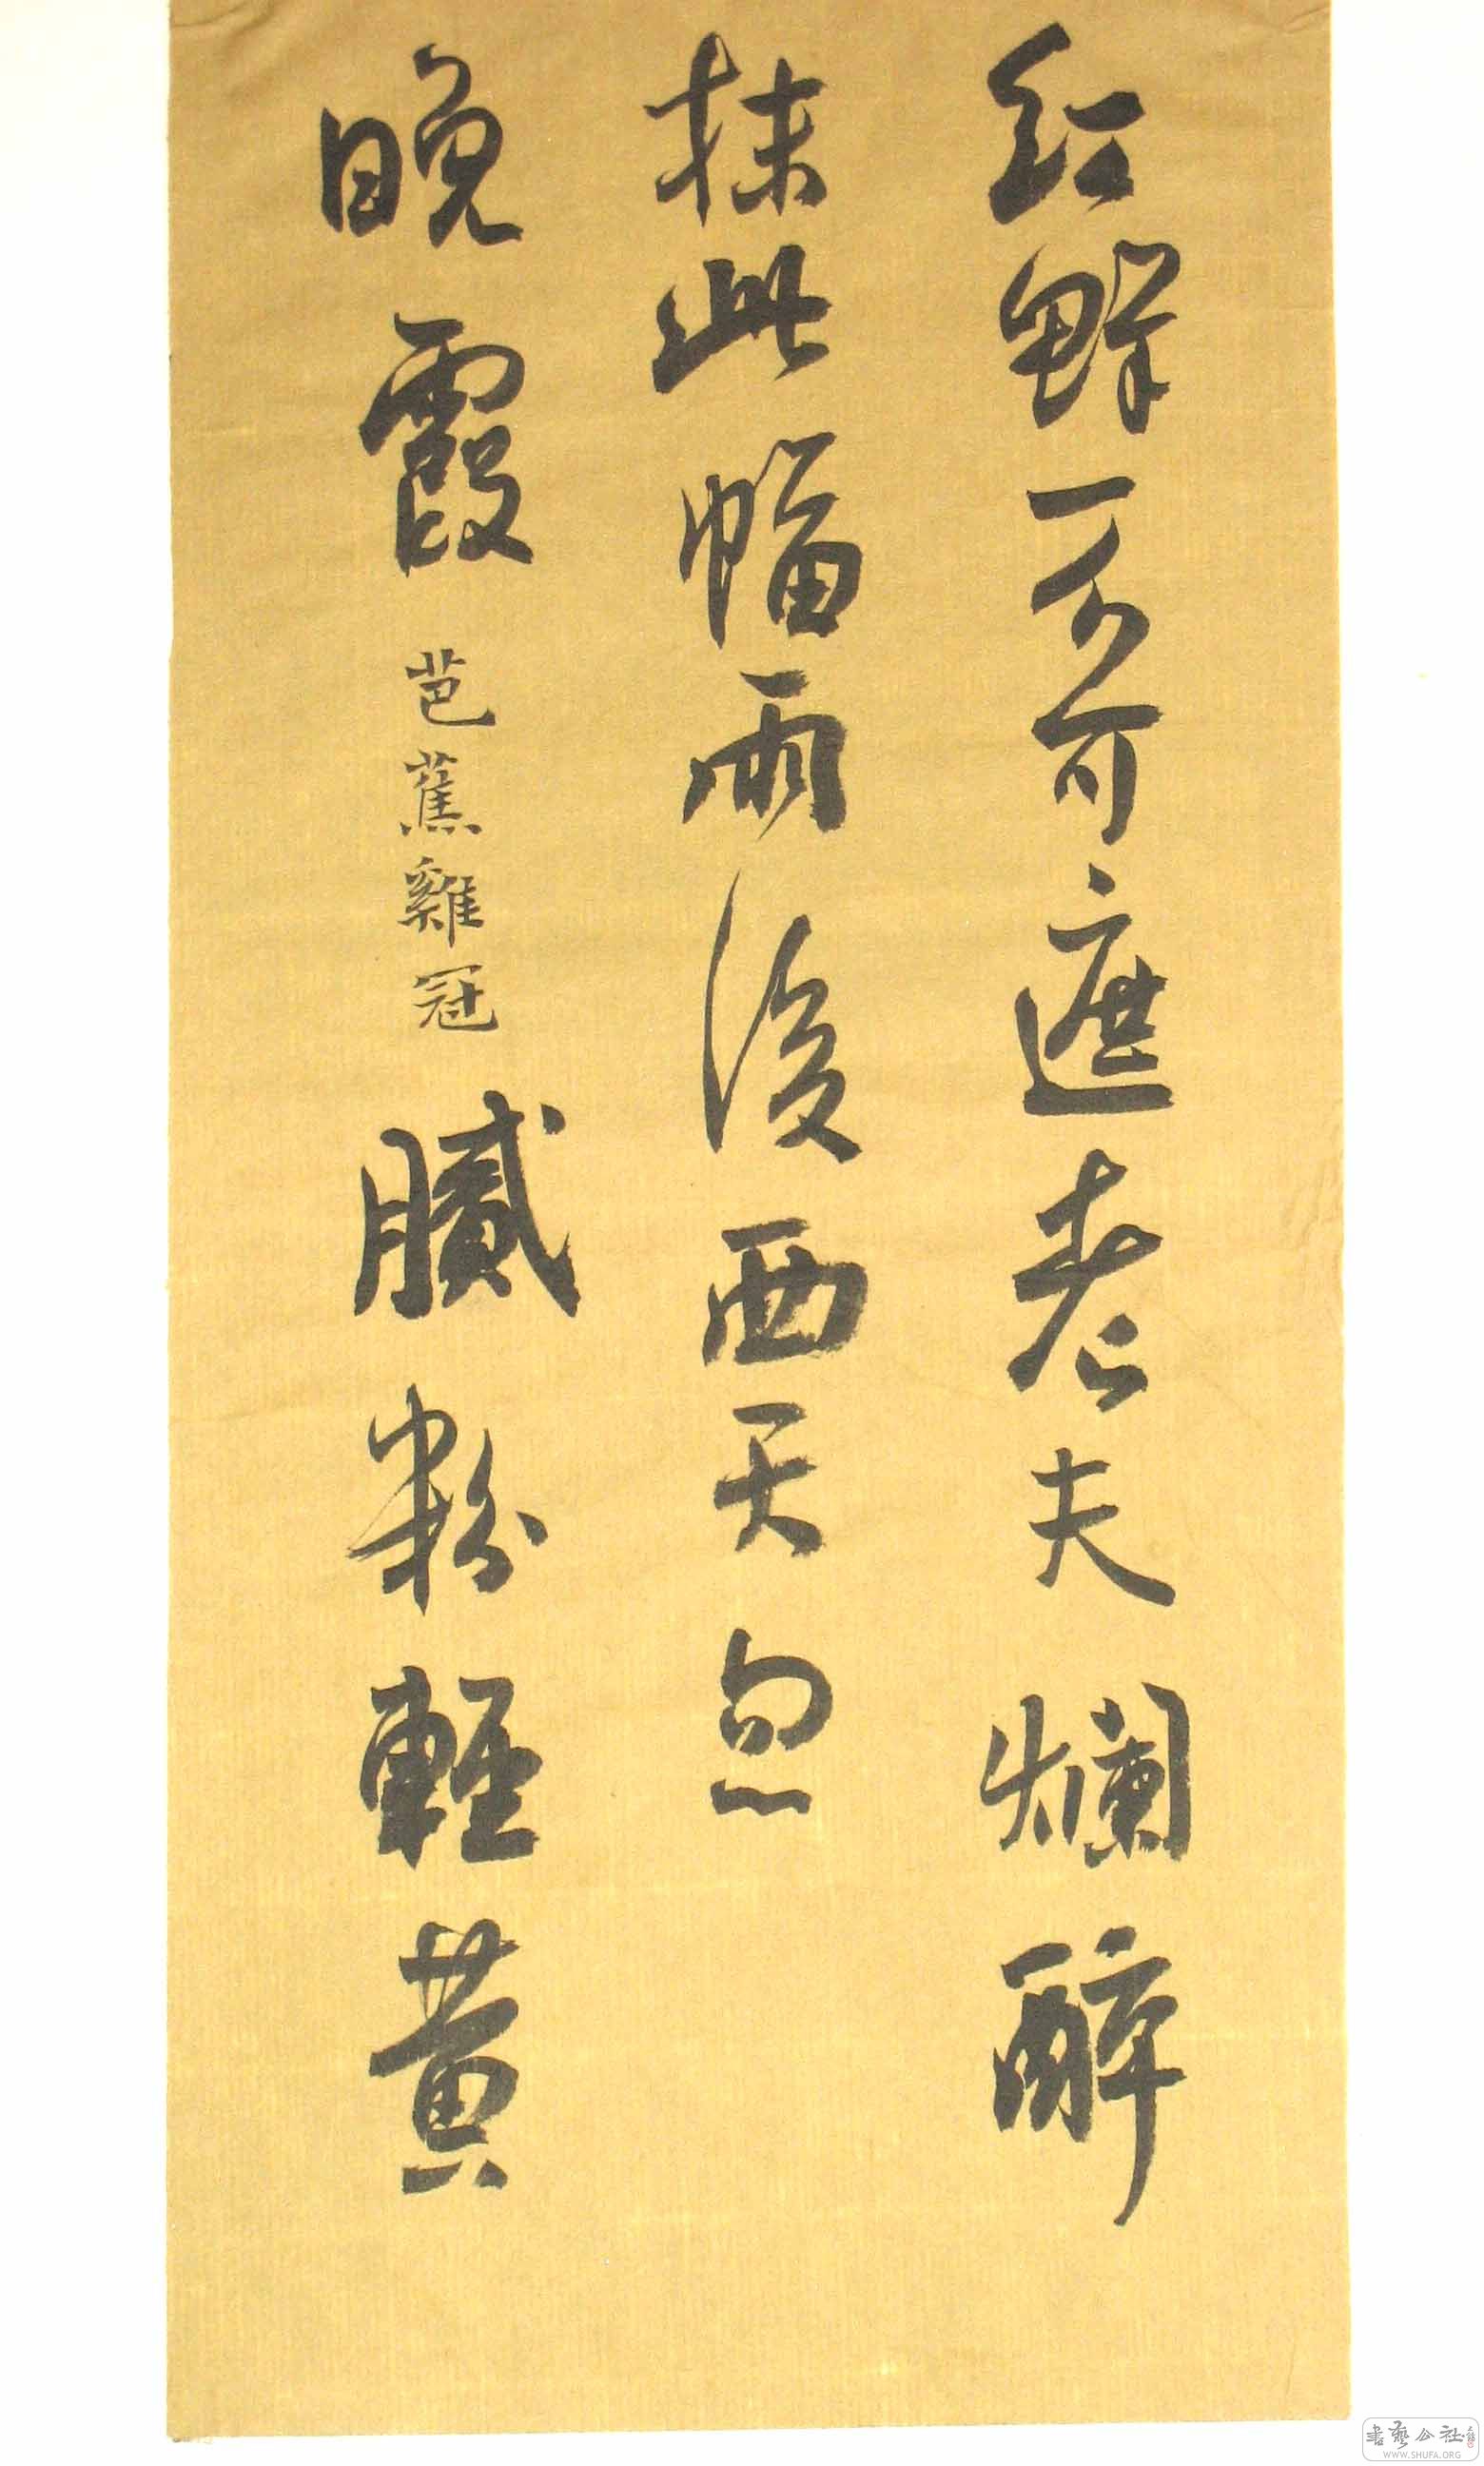 红鲜一不可遮老夫爛醉
抹此幅雨後西天忽
晚霞芭蕉雞冠膩粉輕黄
書藝公社
WWW.SHUFA.ORG